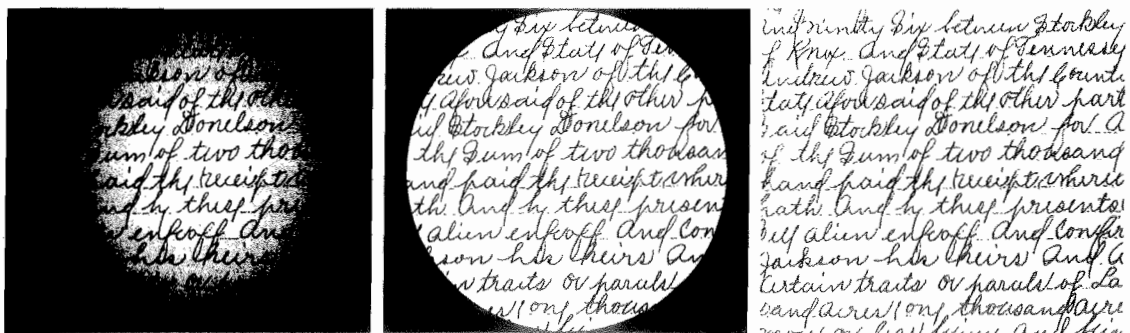 ckson of th
said of the othe
ckley Donelson
um of two thou
aid the receipt w
and by these pre
enfeoff An
his heirs
y Six between
And State of Ten
rew Jackson of the C
y aforesaid of the other p
aid Stockley Donelson for
the Sum of two thousan
and paid the receipt wher
ath And by these presen
l alien enfeoff And Con
son his heirs An
n traits or parals of
res one thousa
and ninety Six between Stockley
of Knox And State of Tennessey
Andrew Jackson of the County
tate aforesaid of the other part
said Stockley Donelson for A
of the Sum of two thousand
hand paid the receipt where
hath And by these presents
sell alien enfeoff And Confir
Jackson his heirs And A
certain traits or parals of La
sand acres one thousand acre